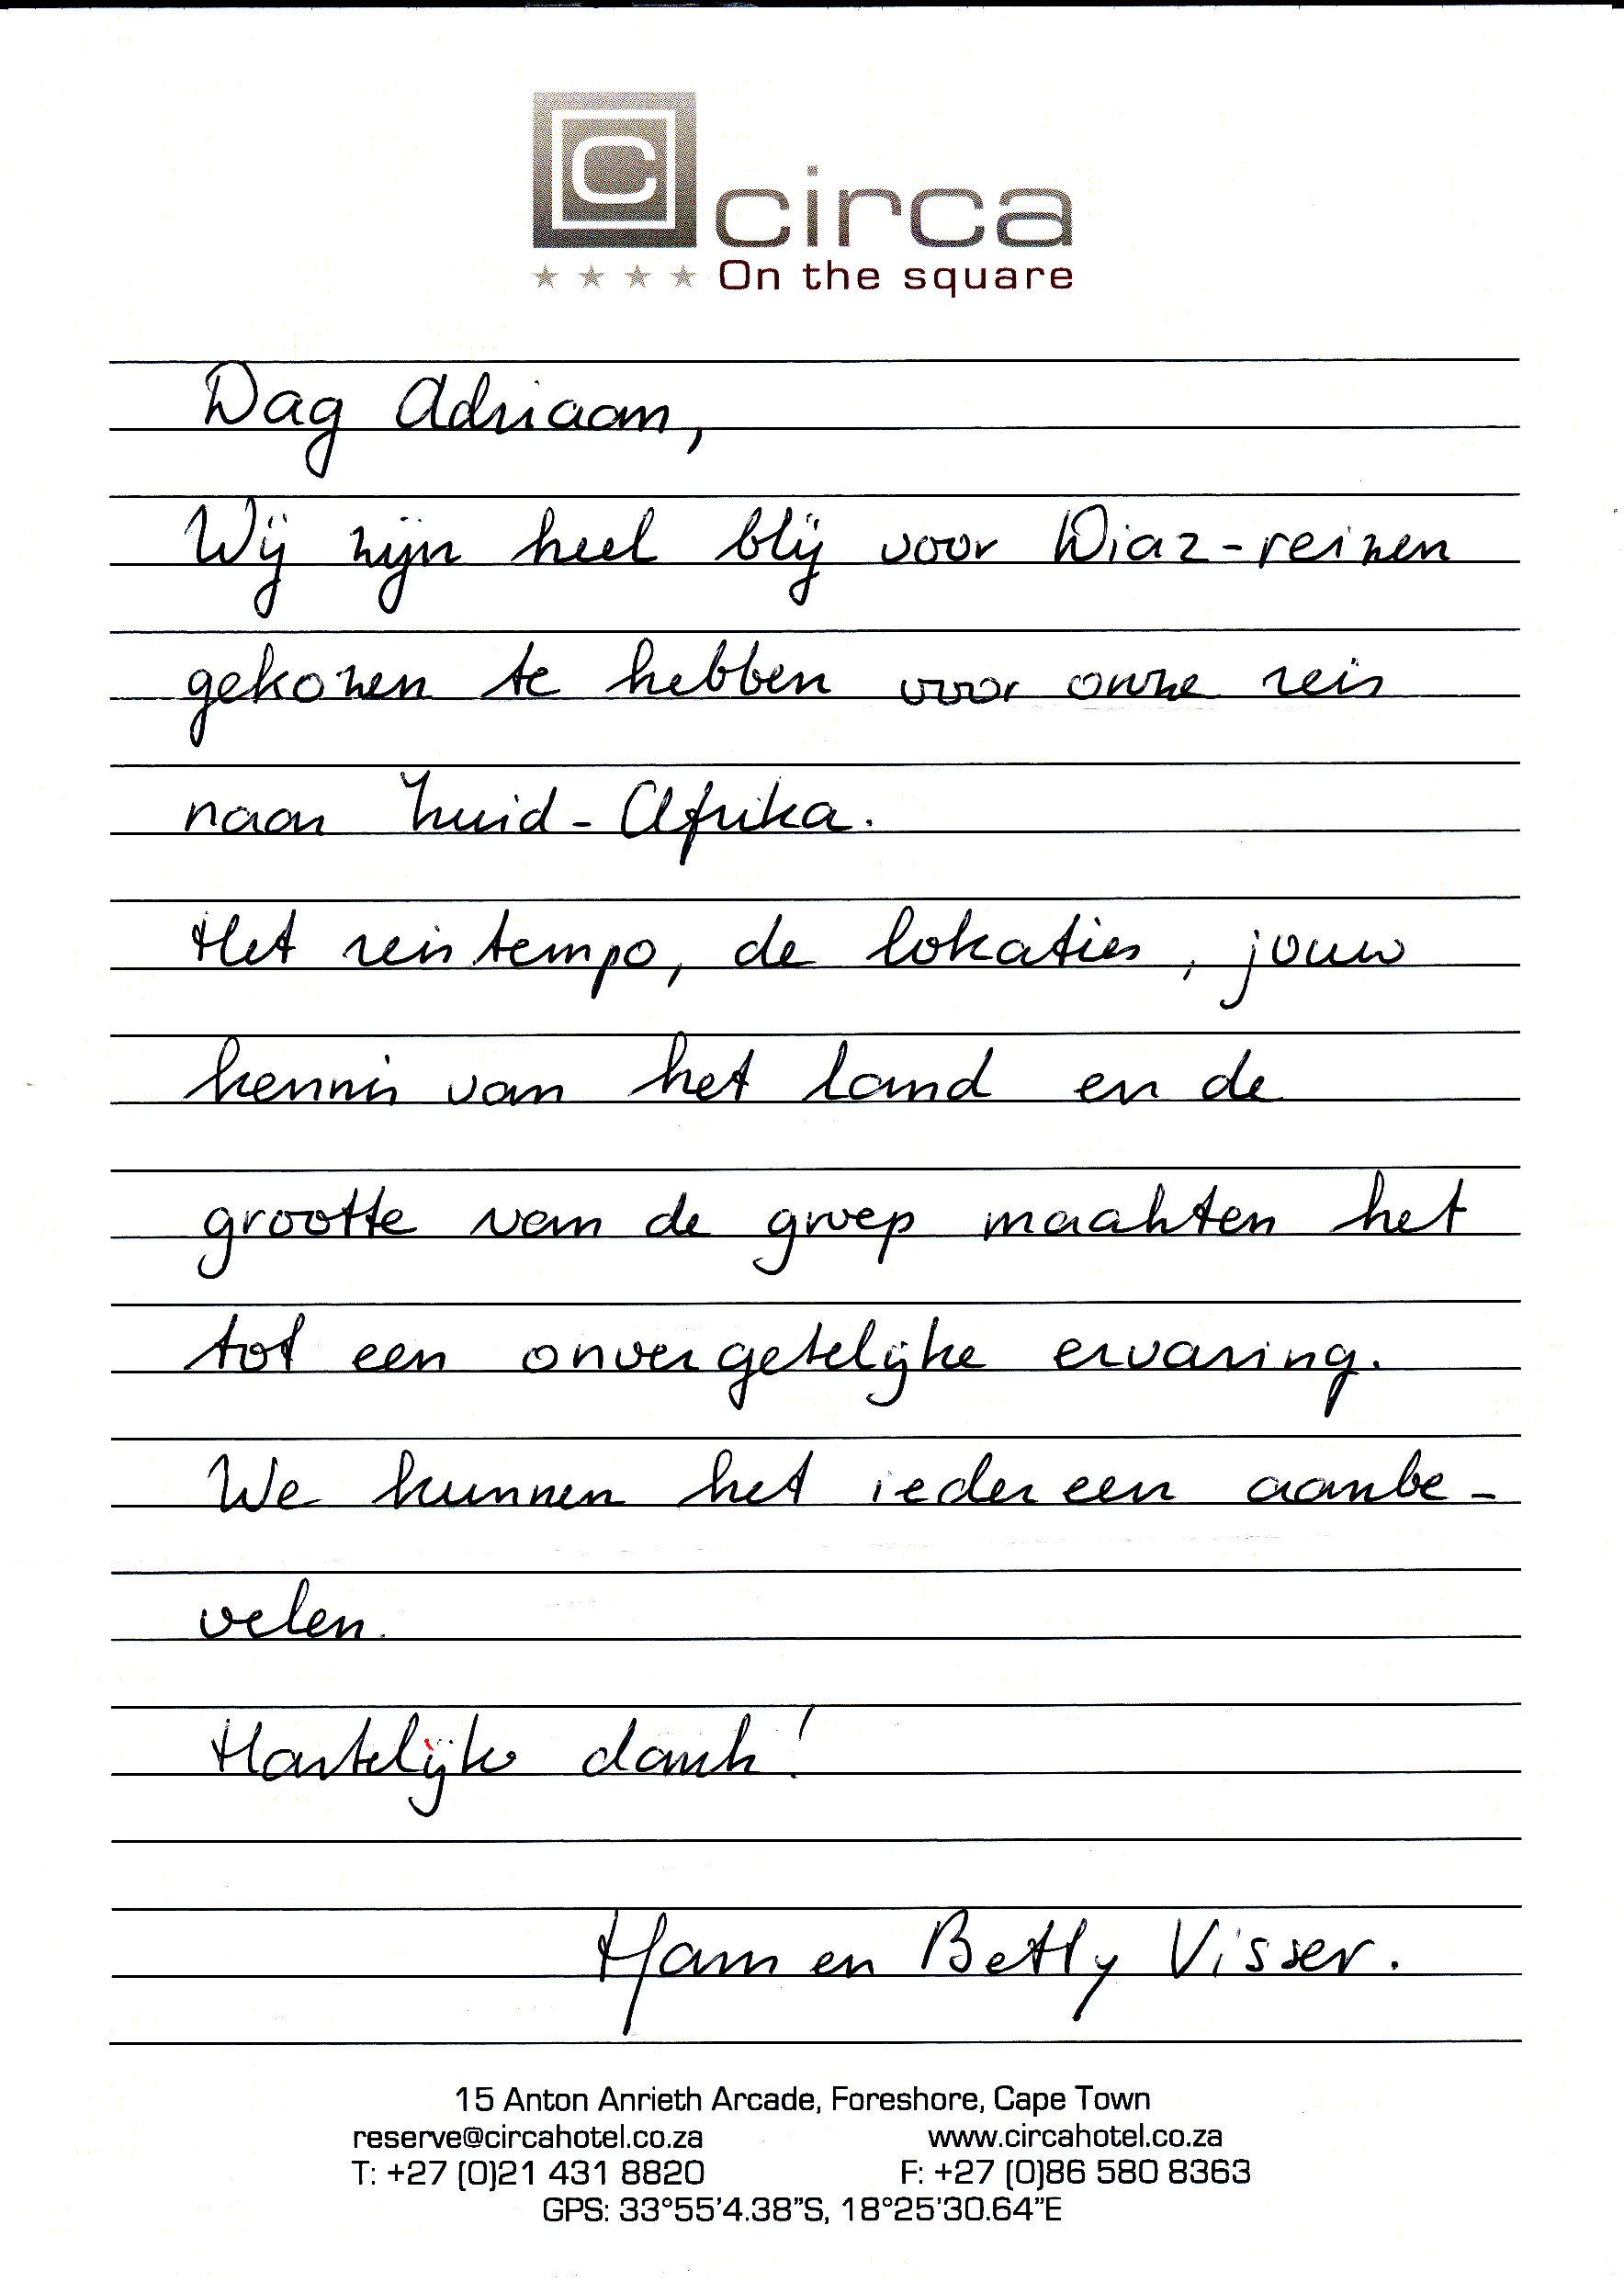 C circa
On the square
Dag Adriaan,
Wij zijn heel blij voor Diaz-reizen
gekozen te hebben voor onze reis
naar Zuid-Afrika.
Het reistempo, de lokaties, jouw
kennis van het land en de
grootte van de groep maakten het
tot een onvergetelijke ervaring.
We kunnen het iedereen aanbe-
velen.
Hartelijke dank!
Ham en Betty Visser.
15 Anton Anrieth Arcade, Foreshore, Cape Town
reserve@circahotel.co.za www.circahotel.co.za
T: +27 (0)21 431 8820 F: +27 (0)86 580 8363
GPS: 33°55'4.38"S, 18°25'30.64"E